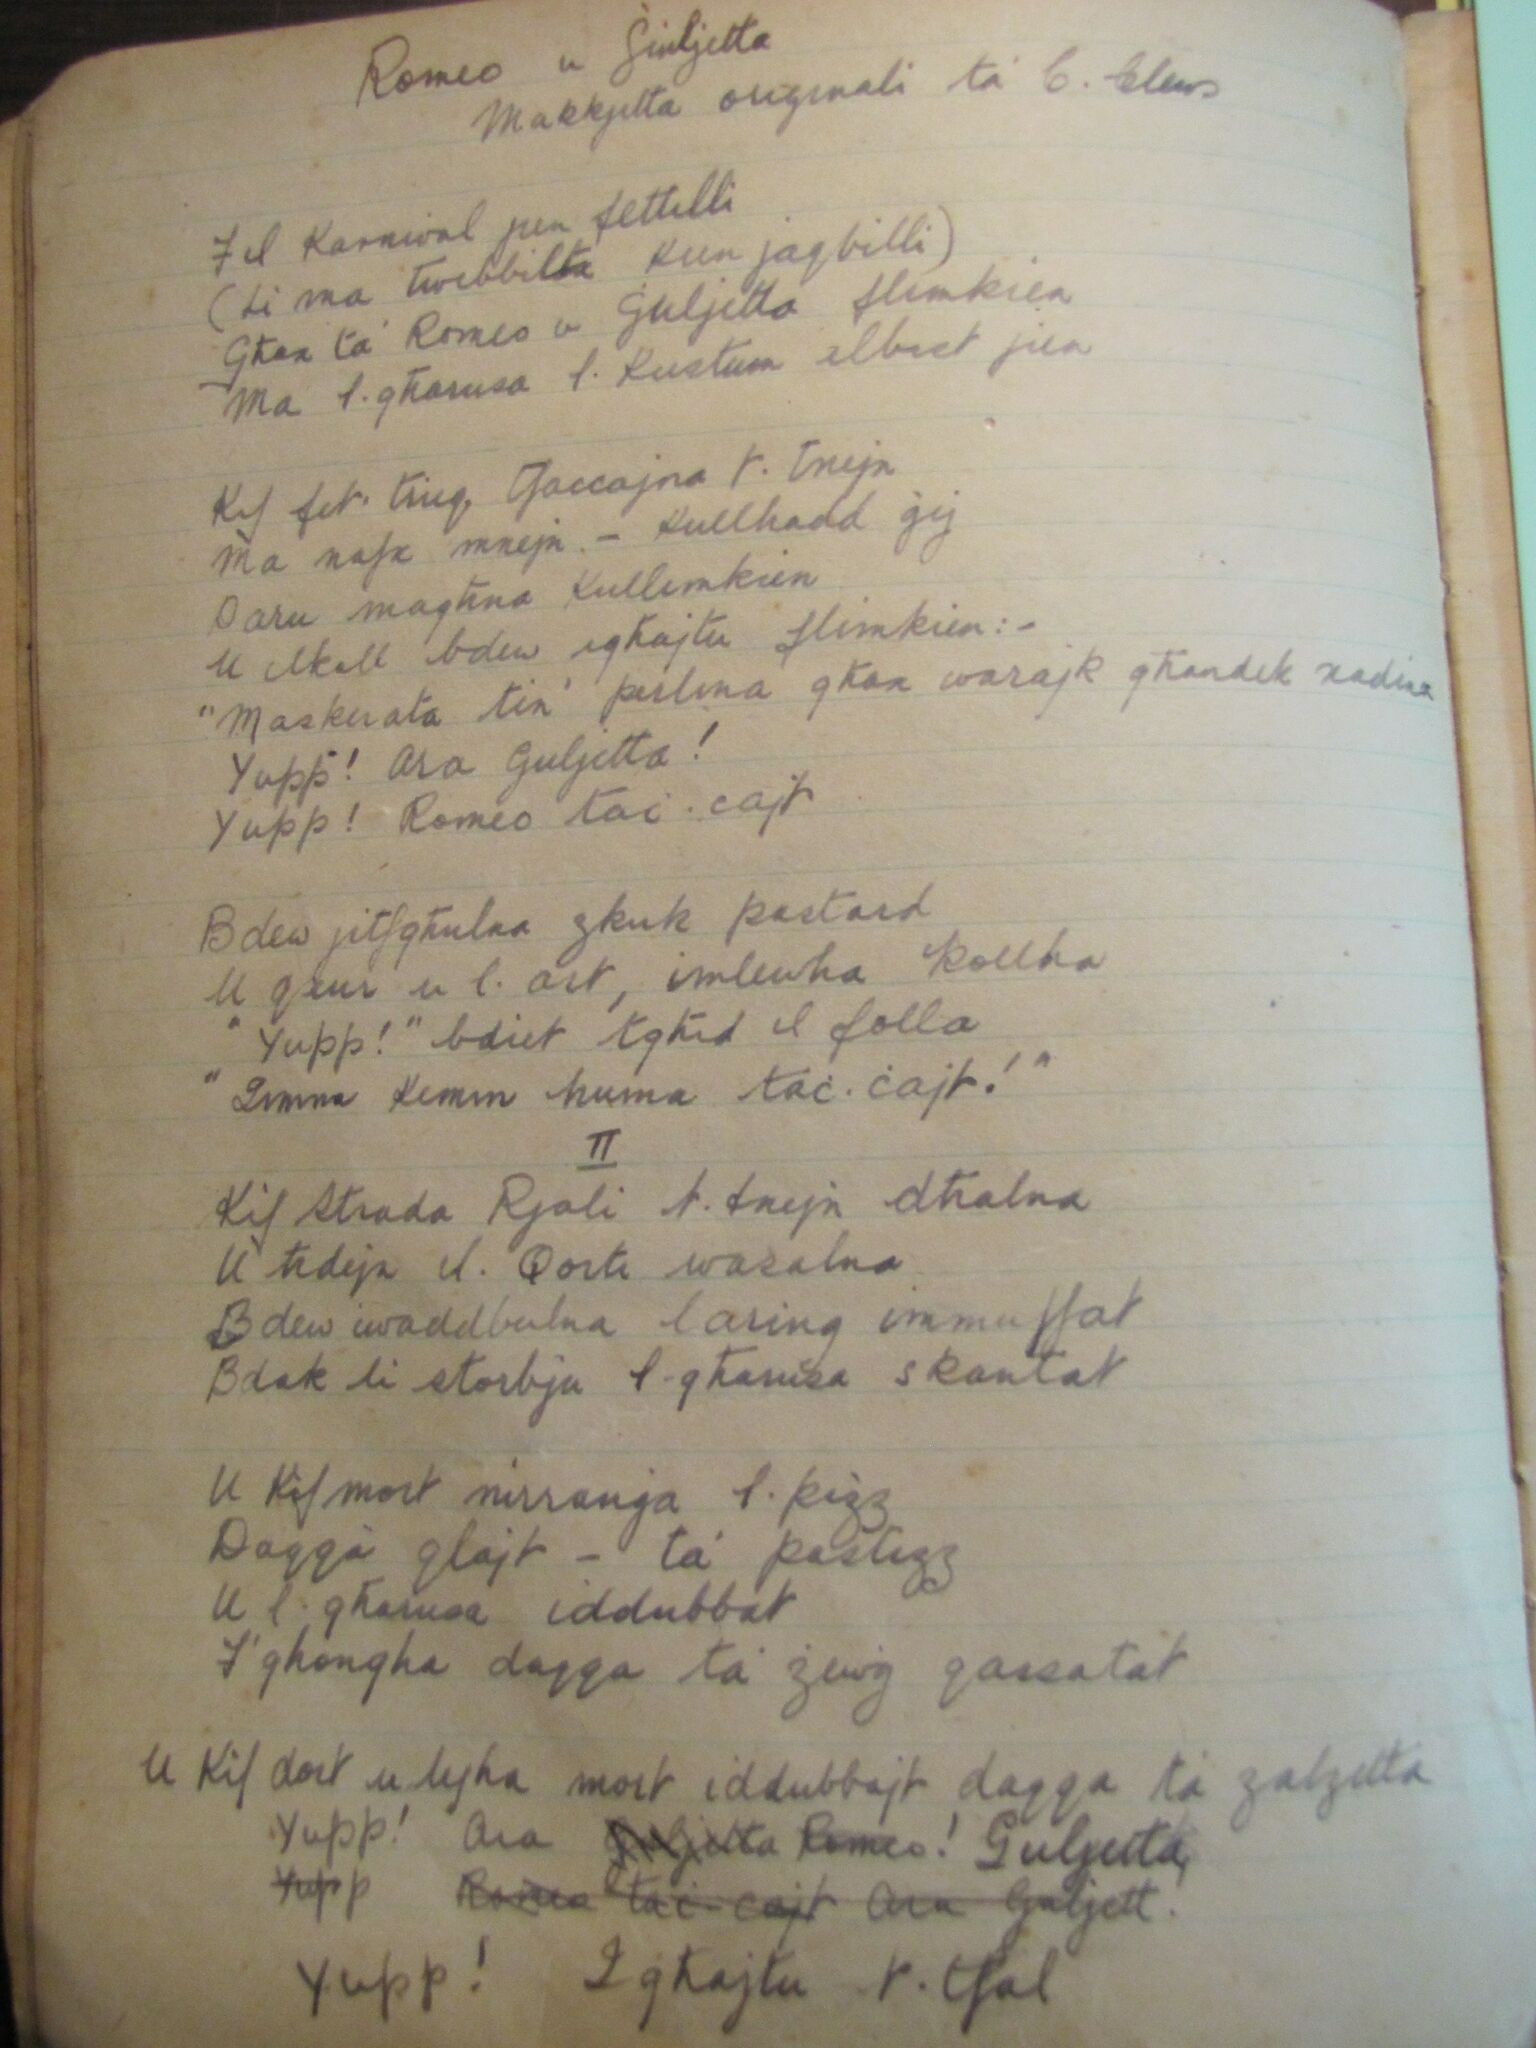 Romeo u Giuljetta
Makkjetta originali ta' C. Clews
Fil Karnival jien flettilli
(Li ma twebbilta kien jaqbilli)
Għax ta' Romeo u Guljetta flimkien
Ma l.għarusa l. Kustum ilbist jien
Kif fit. triq, tfaccajna t. tnejn
Ma nafx mnejn. - Kullhadd ġij
Daru magħna Kullimkien
U lkoll bdew igħajtu flimkien:-
"Maskerata tin' perlina għax warajk għandek xadina
Yupp! Ara Guljetta!
Yupp! Romeo taċ. cajt
Bdew jitfgħulna zkuk pastard
U qxur u l. art, imlewha kollha
"Yupp!" bdiet tgħid il folla
"Imma kemm huma taċ. ċajt!"
II
Kif Strada Rjali t. tnejn dħalna
U ħdejn il. Qorti wasalna
Bdew iwaddbulna laring immuffat
Bdak li storbju l-għarusa skantat
U Kif mort nirranġa l. pizz
Daqqa qlajt - ta' pastizz
U l. għarusa iddubbat
F'għongha daqqa ta' żewġ qassatat
U Kif dort u lejha mort iddubbajt daqqa ta' zalzetta
Yupp! Ara Guljetta Romeo! Guljetta,
Yupp Romeo taċ. cajt Ara Guljett!
Yupp! Igħajtu t. tfal